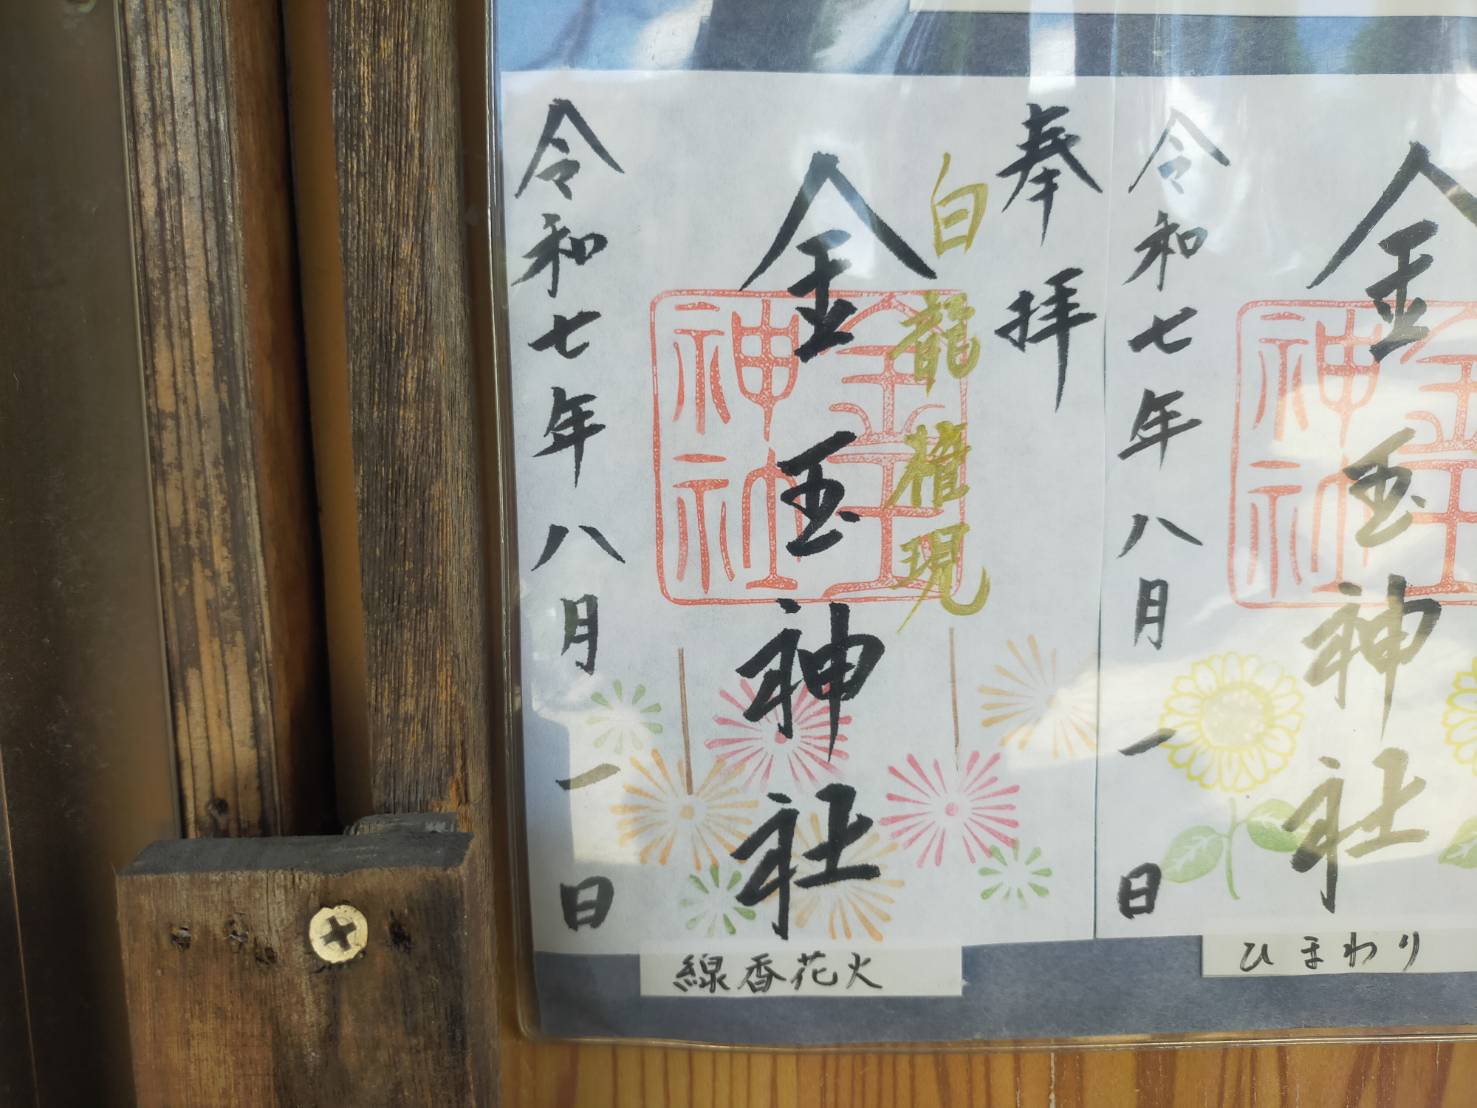 奉拝
白龍権現
金玉神社
金玉神社
令和七年八月一日
線香花火
金玉神社
金玉神社
令和七年八月一日
ひまわり